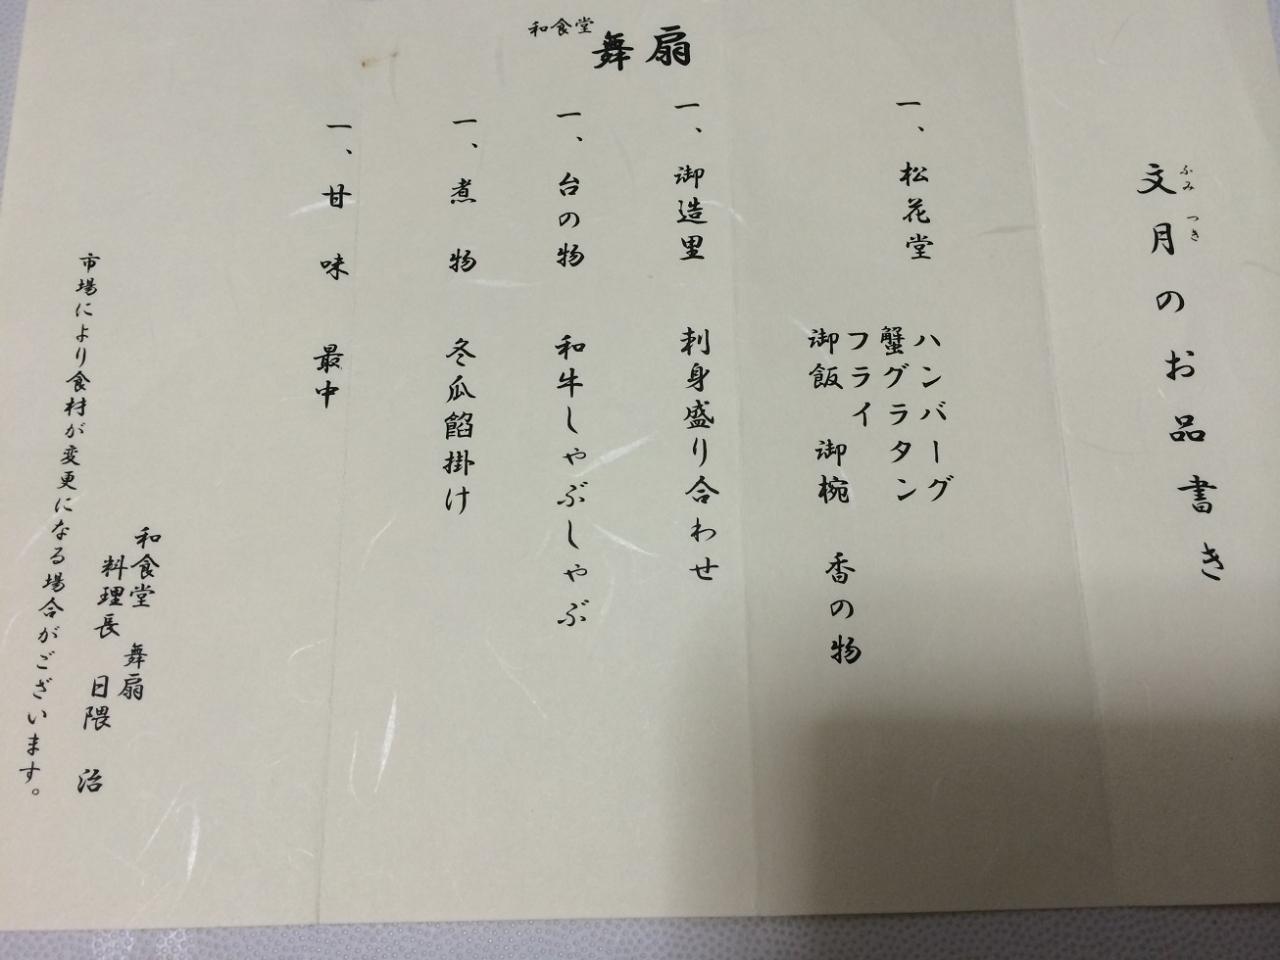 文月のお品書き
ふみつき
一、松花堂 ハンバーグ
蟹グラタン
フライ
御飯 御椀 香の物
一、御造里 刺身盛り合わせ
一、台の物 和牛しゃぶしゃぶ
一、煮物 冬瓜餡掛け
一、甘味 最中
和食堂 舞扇
和食堂 舞扇
料理長 日隈 治
市場により食材が変更になる場合がございます。